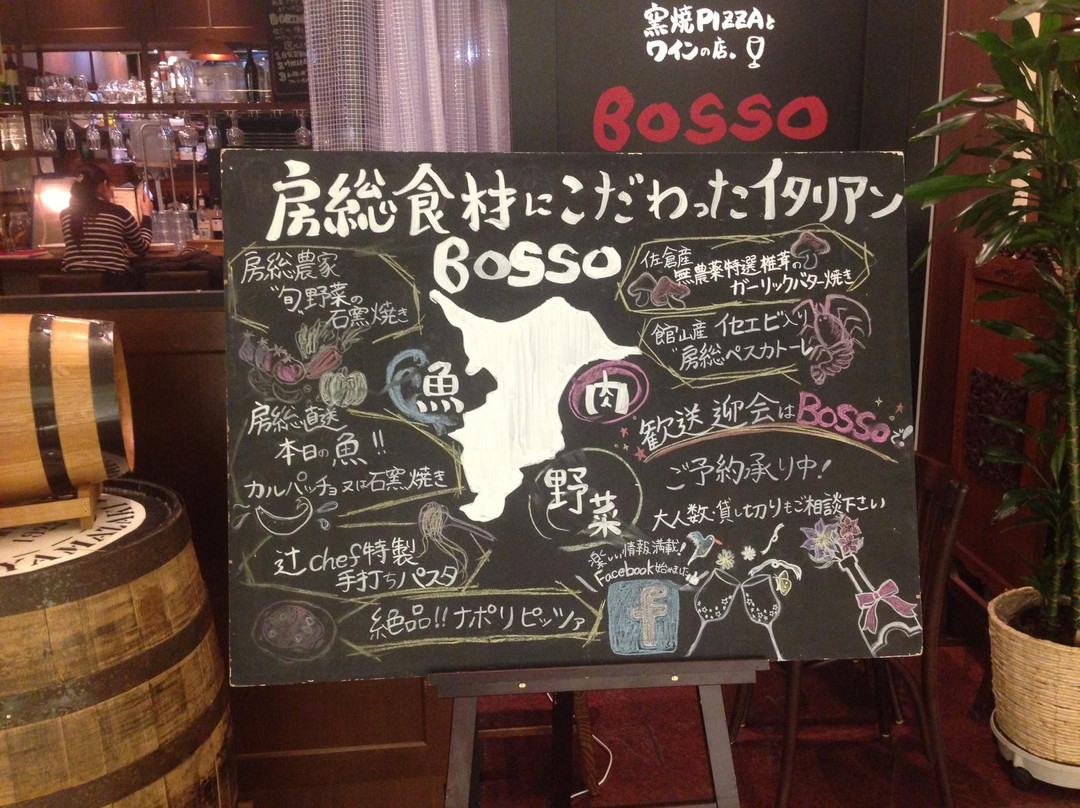 窯焼PIZZAと
ワインの店。
BOSSO
房総食材にこだわったイタリアン
BOSSO
房総農家
"旬"野菜の
石窯焼き
房総直送
本日の魚!!
カルパッチョ又は石窯焼き
辻chef特製
手打ちパスタ
絶品!!ナポリピッツァ
魚
肉
野菜
佐倉産
無農薬特選椎茸の
ガーリックバター焼き
館山産イセエビ入り
"房総ペスカトーレ"
歓送迎会はBOSSOで!
ご予約承り中!
大人数・貸し切りもご相談下さい
楽しい情報満載!
Facebook始めました
f